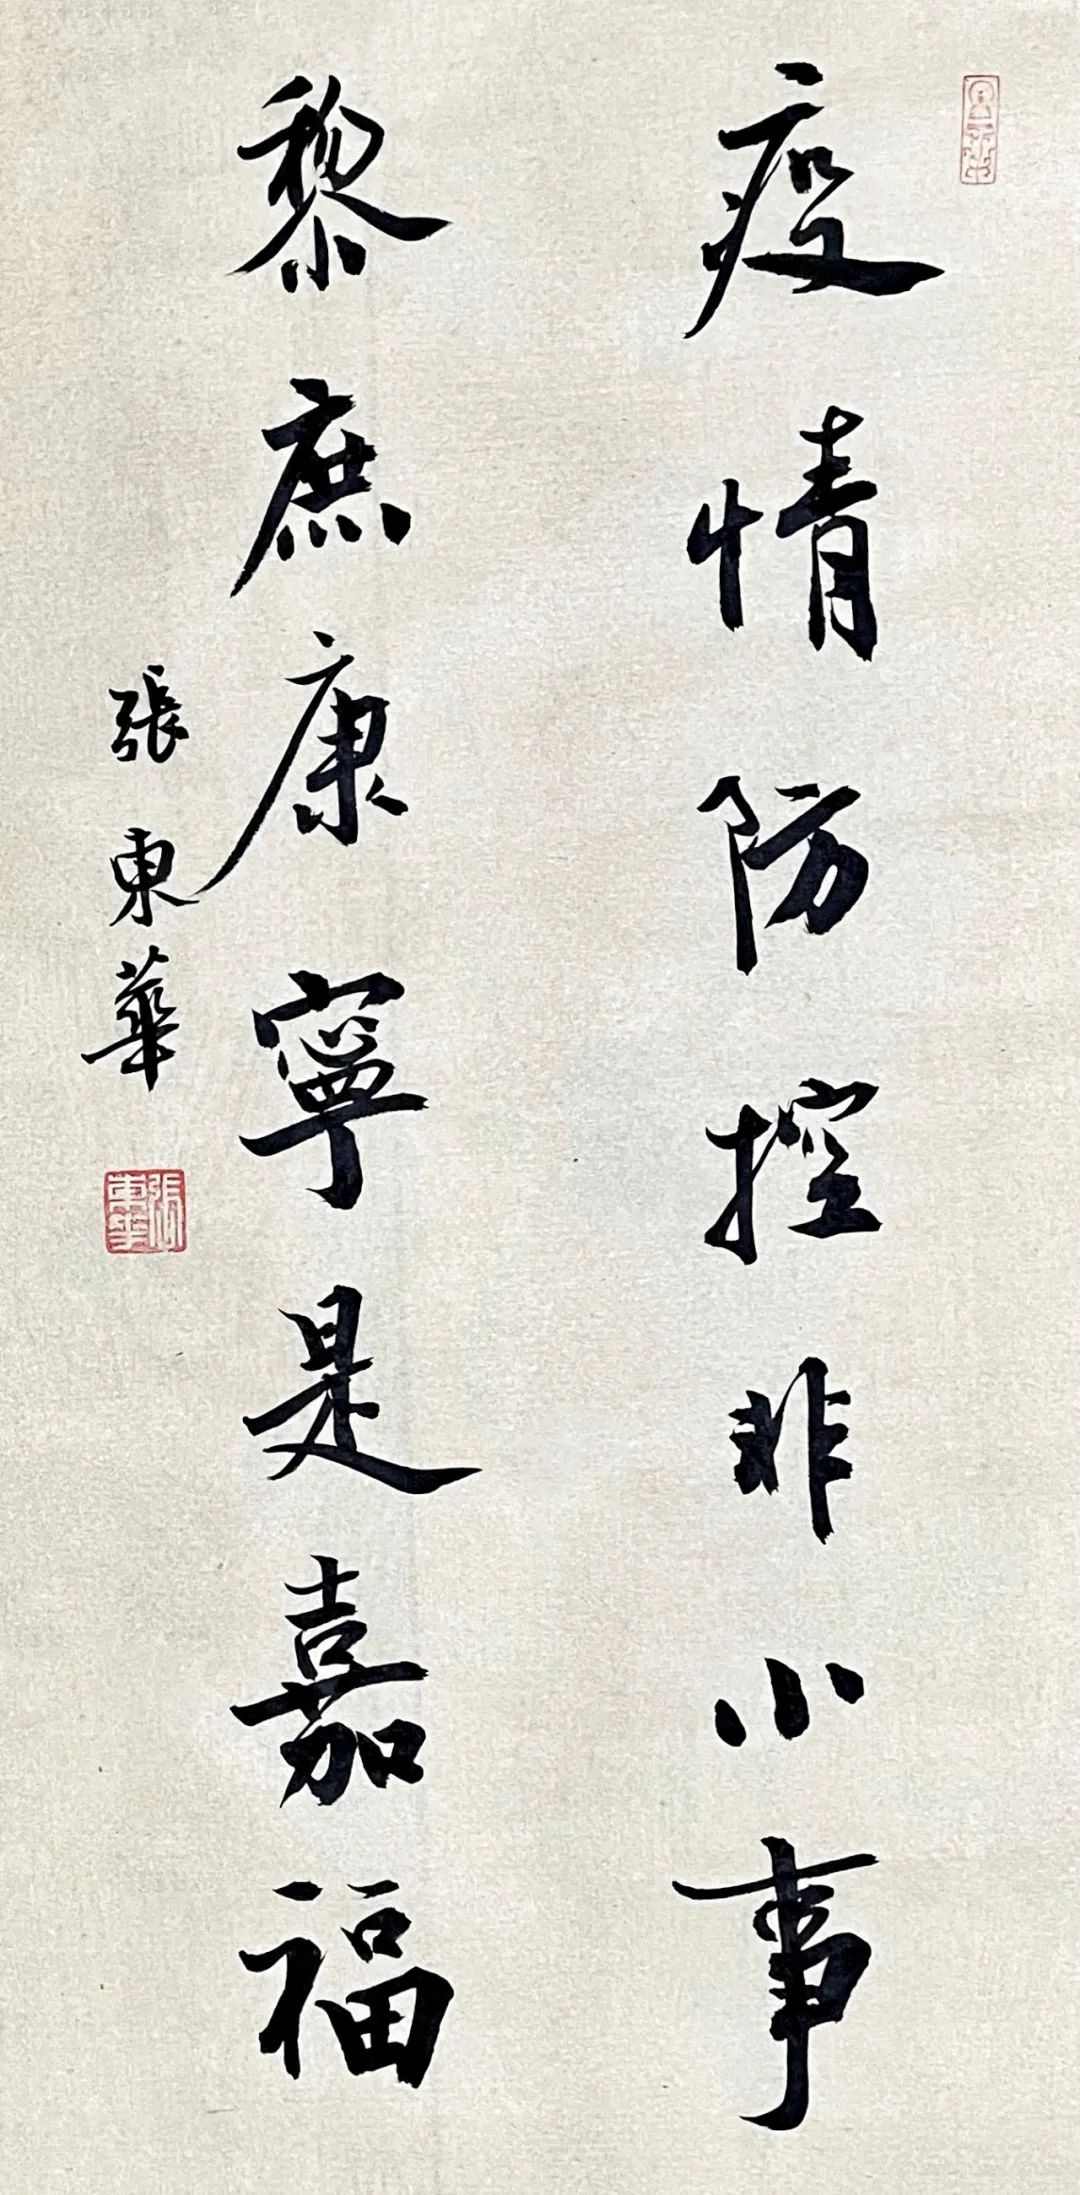 疫情防控非小事
黎庶康寧是嘉福
張東華
張東華